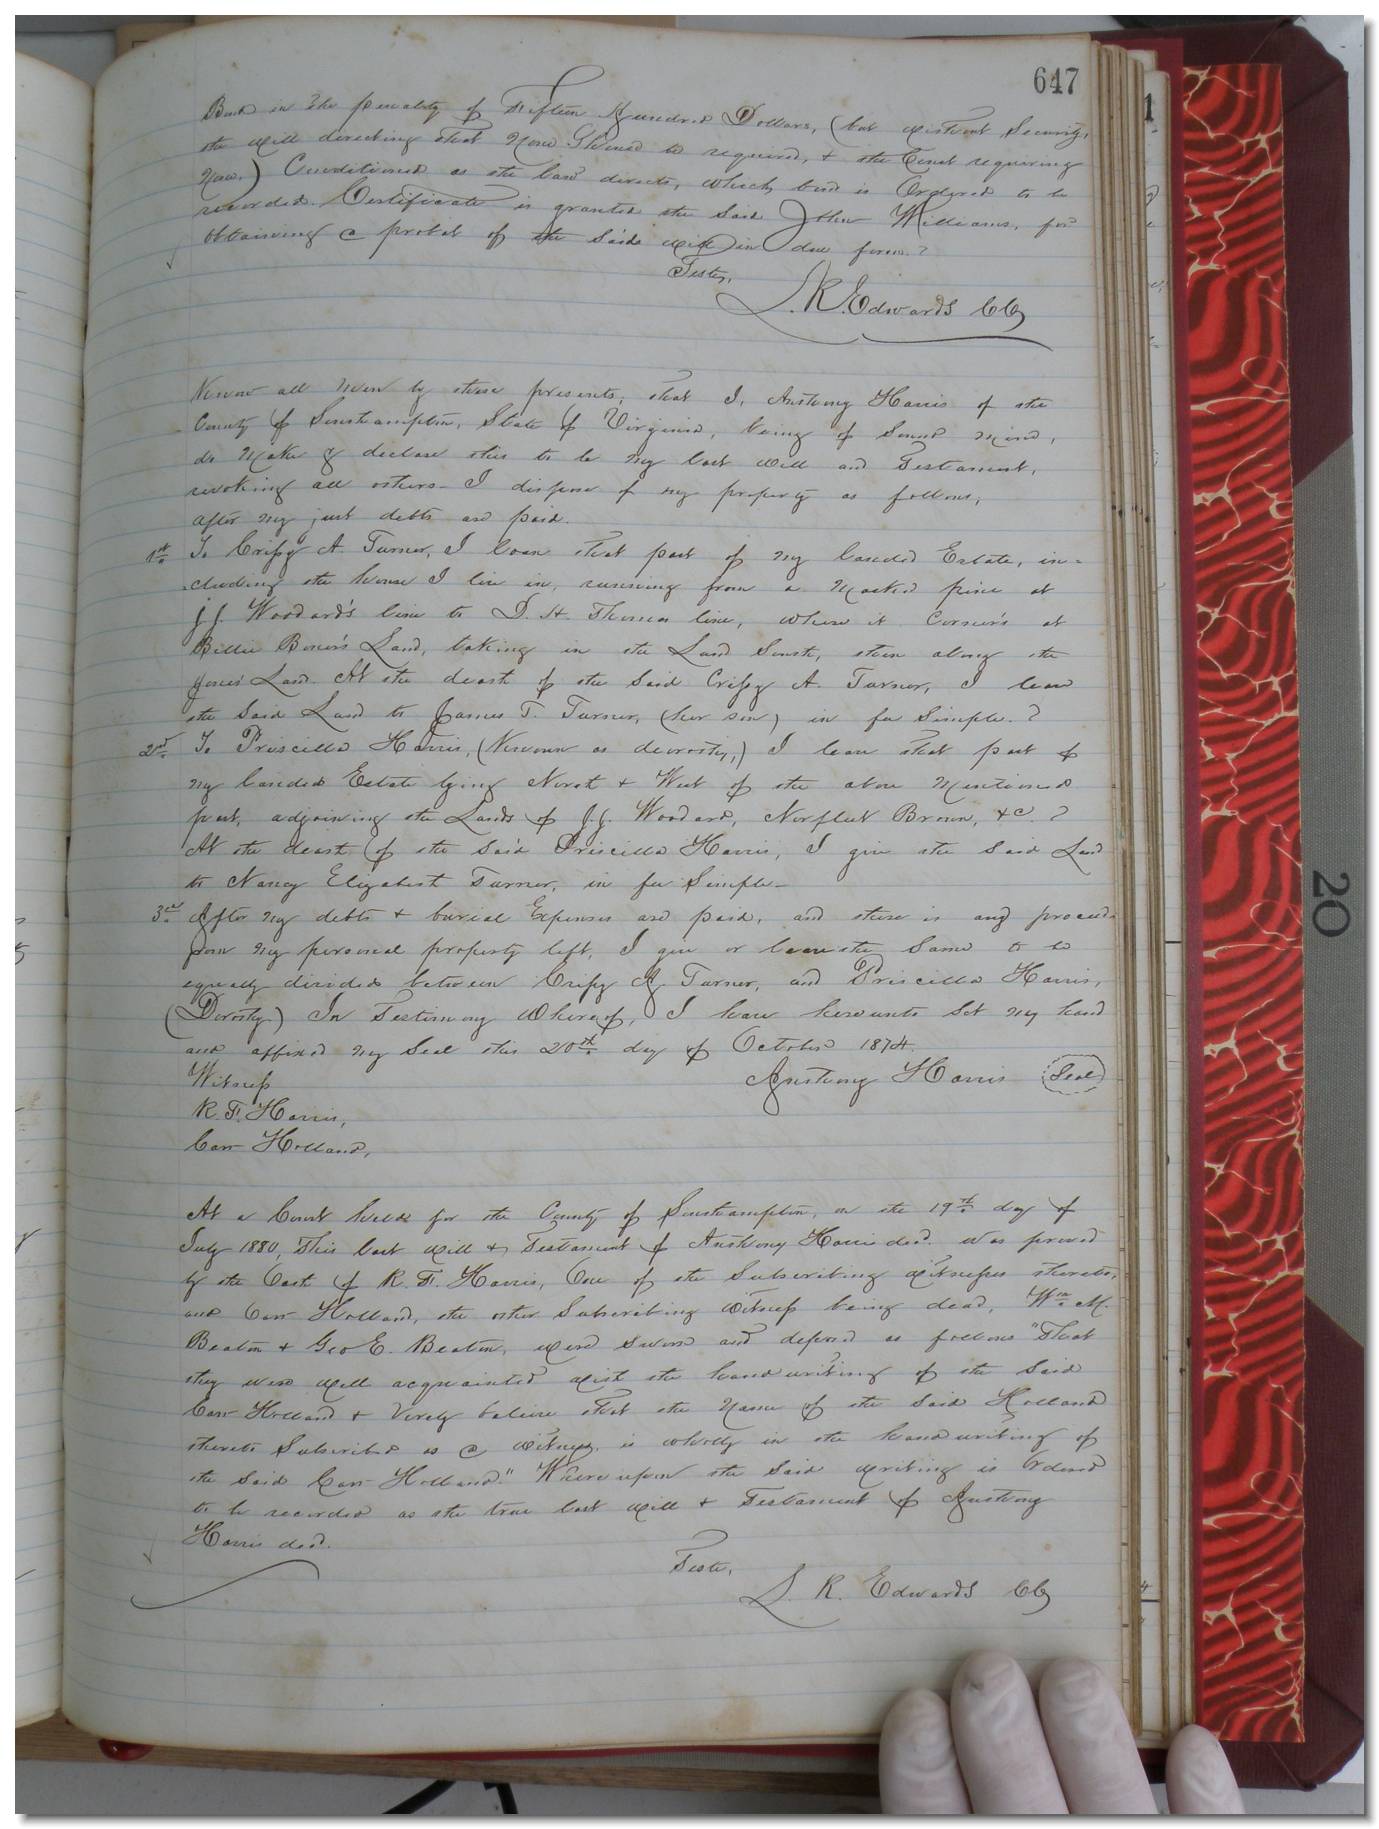 647
Bond in the penalty of Fifteen Hundred Dollars, (but without Security,
the will directing that None Should be required, & the Court requiring
None.) Conditioned as the law directs, which bond is Ordered to be
recorded. Certificate is granted the said John Williams, for
obtaining a probat of the said will in due form.
Teste,
L. R. Edwards CC
Know all Men by these presents, that I, Anthony Harris of the
County of Southampton, State of Virginia, being of Sound Mind,
do Make & declare this to be my last will and Testament,
revoking all others - I dispose of my property as follows,
after my just debts are paid.
1st. To Crissy A. Turner, I loan that part of my landed Estate, in=
cluding the house I live in, running from a Marked pine at
J.J. Woodard's line to D. H. Thomas line, where it Corner's at
Billie Land, taking in the Land South, then along the
Jones' Land. At the death of the said Crissy A. Turner, I leave
the said Land to James T. Turner, (her son) in fee Simple.
2nd. To Priscilla Harris, (Known as dorothy,) I loan that part of
my landed Estate lying North & West of the above Mentioned
part, adjoining the Lands of J.J. Woodard, Norfleet Brown, &c.
At the death of the said Priscilla Harris, I give the said Land
to Nancy Elizabeth Turner, in fee Simple -
3rd. After my debts & burial Expenses are paid, and there is any proceeds
from my personal property left, I give or leave the Same to be
equally divided between Crissy A. Turner, and Priscilla Harris,
(Dorothy.) In Testimony Whereof, I have hereunto Set my hand
and affixed my Seal this 20th. day of October 1874.
Witness Anthony Harris (Seal)
R. F. Harris,
Carr Holland,
At a Court held for the County of Southampton, on the 19th. day of
July 1880, This last will & Testament of Anthony Harris decd. was proved
by the Oath of R. F. Harris, One of the Subscribing witnesses thereto,
and Carr Holland, the other Subscribing witness being dead, Wm. M.
Beaton & Geo E. Beaton, were sworn and deposed as follows "That
they were well acquainted with the handwriting of the said
Carr Holland & Verely believe that the Name of the said Holland
thereto Subscribed as a witness, is wholly in the handwriting of
the said Carr Holland." Whereupon the said writing is Ordered
to be recorded as the true last will & Testament of Anthony
Harris decd.
Teste,
L. R. Edwards CC
20